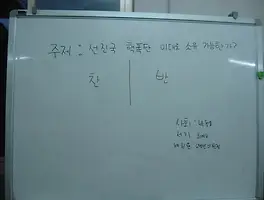 주제 : 선진국 핵폭탄 이대로 소유 가능한가?
찬 반
사회 :
서기